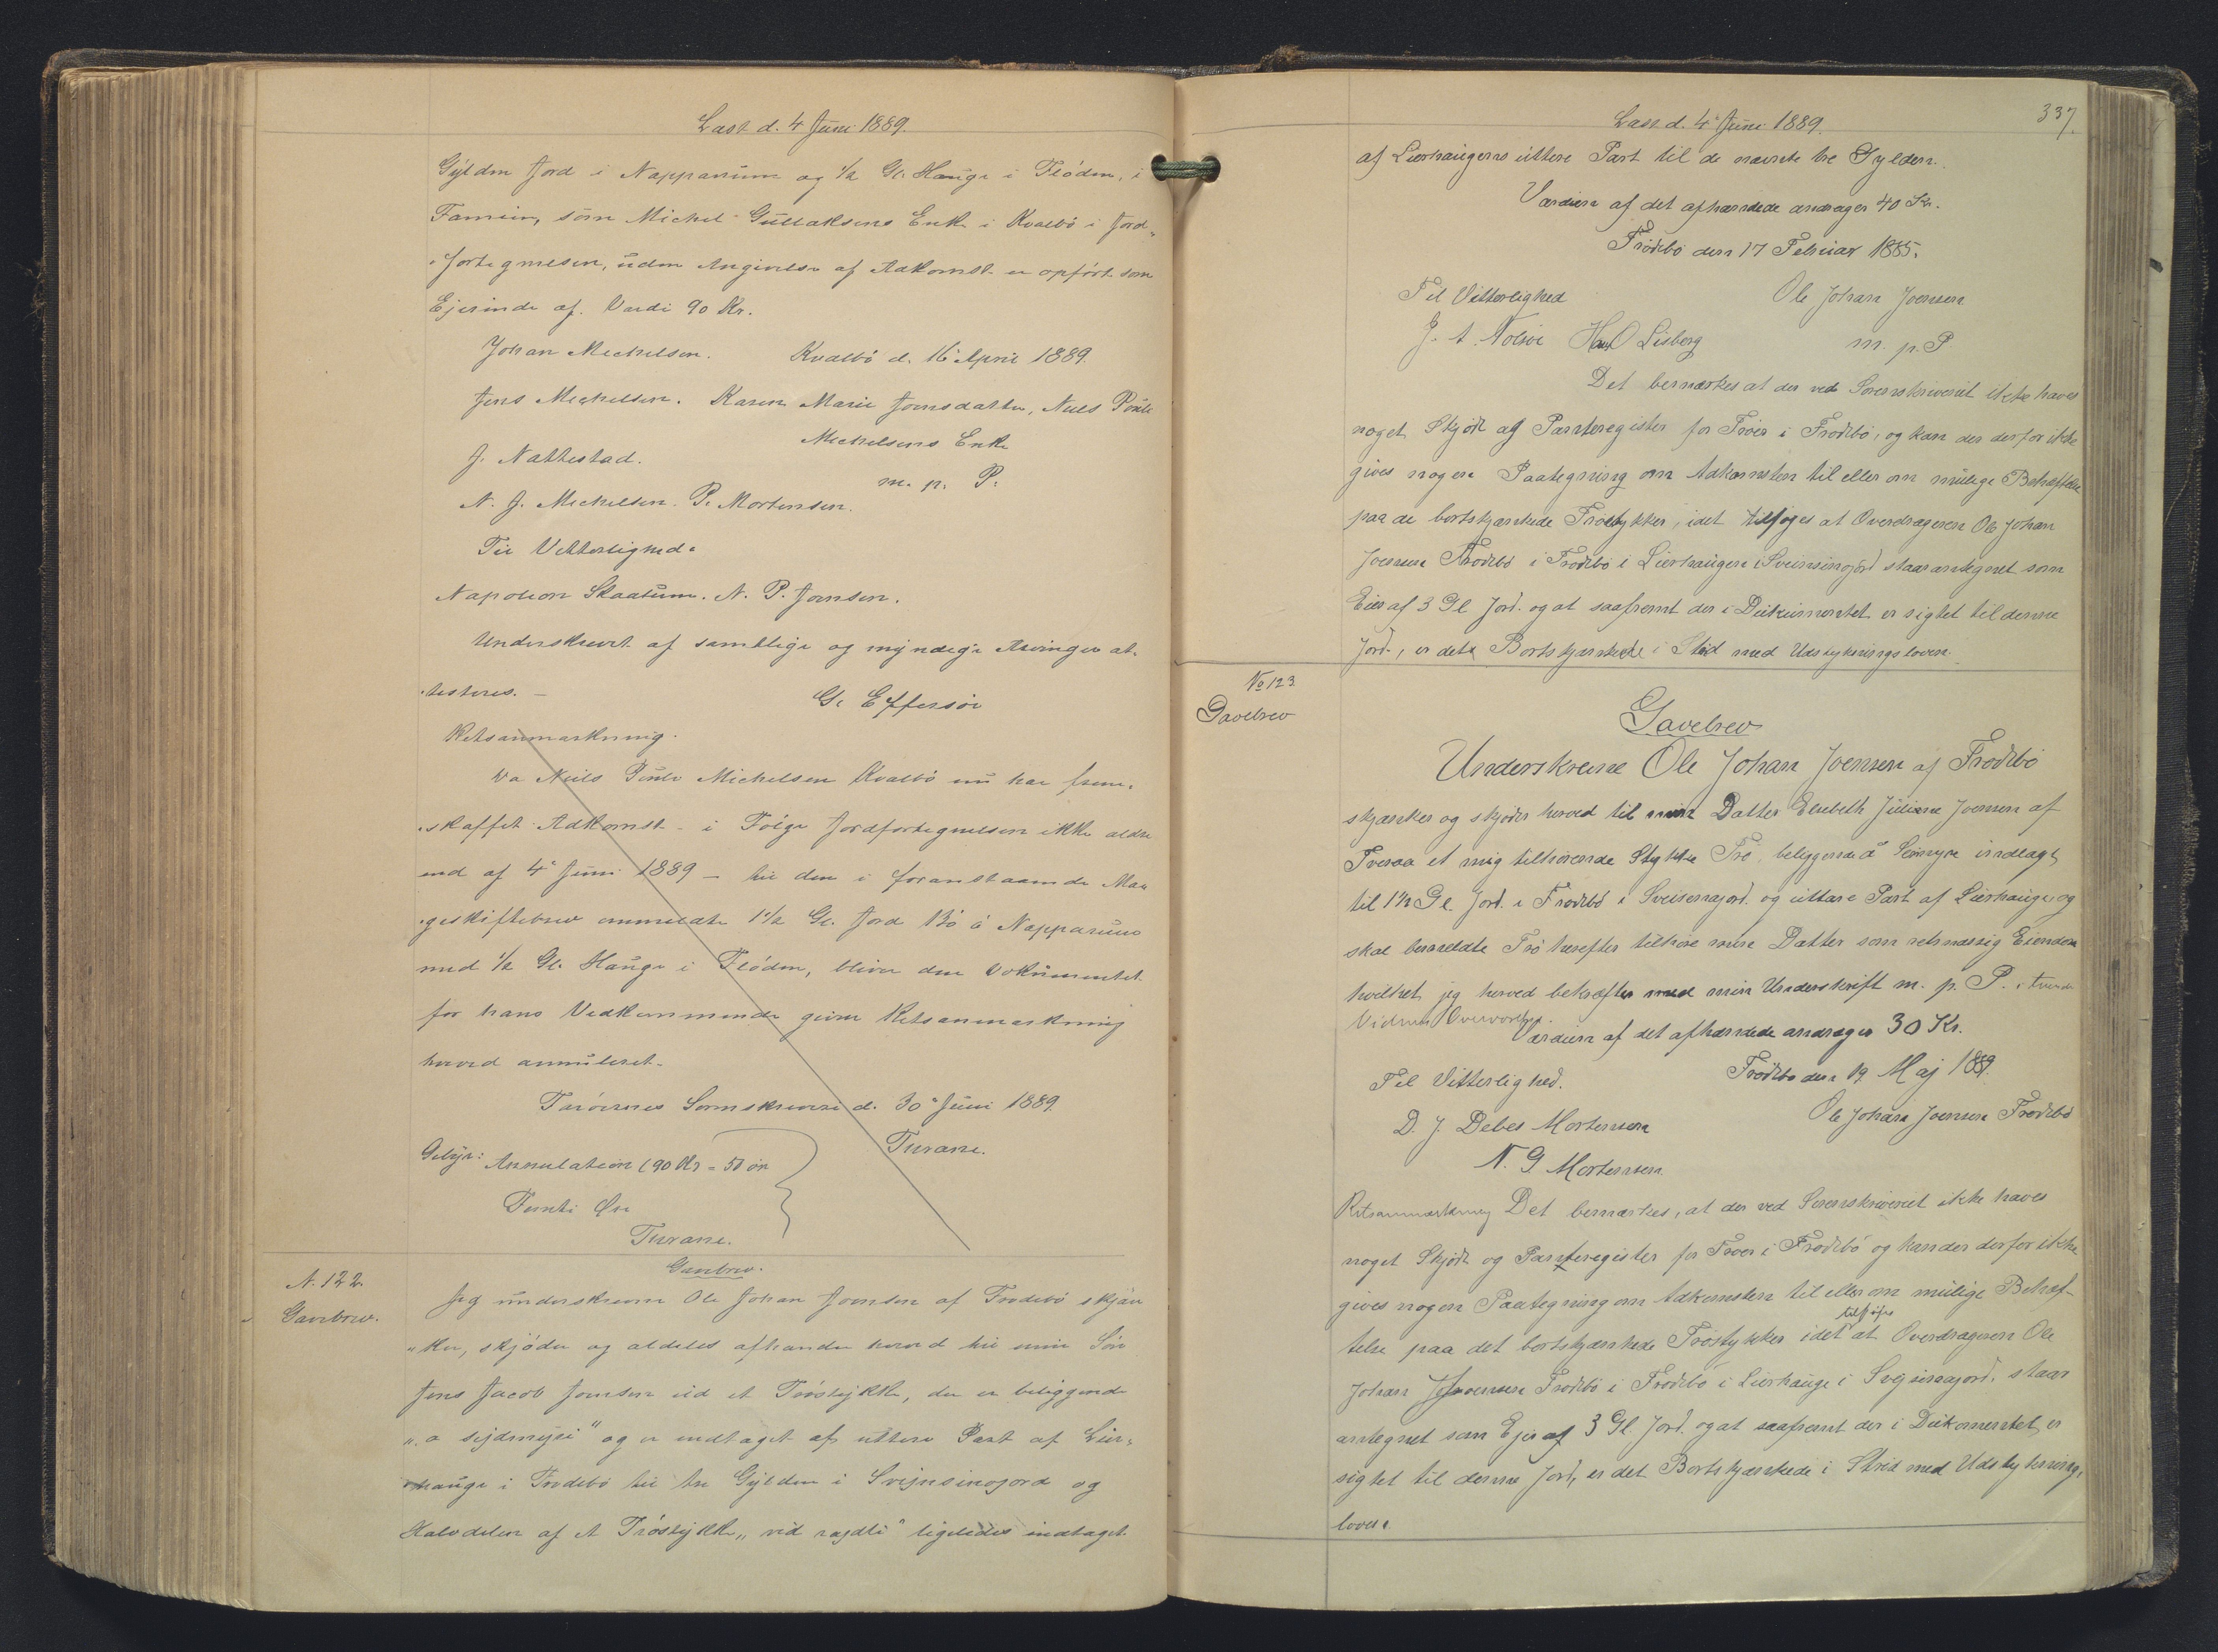 Læst d. 4 Juni 1889.
Gylden Jord i Napparum og 1/2 Gl. Hauge i Flöden, i
Famien, som Michel Gullaksens Enke i Kvalbö i Jord-
fortegnelsen, uden Angivelse af Adkomst er opfört som
Ejerinde af. Værdi 90 Kr.
Johan Michelsen. Kvalbö d. 16 April 1889.
Jens Michelsen. Karen Marie Joensdatter, Niels Pouls
Michelsens Enke
J. Nattestad.
m. p. P.
N. J. Michelsen. P. Mortensen.
Til Vitterlighed.
Napoleon Skaalum. N. P. Joensen.
Underskrevet af samtlige og myndige Arvinger at-
testeres.
G. Effersöe
Retsanmærkning.
Da Niels Poule Michelsen Kvalbö nu har frem-
skaffet Adkomst - i Fölge Jordfortegnelsen ikke ældre
end af 4 Juni 1889 - til den i foranstaaende Ma-
geskiftebrev ommeldte 1 1/2 Gl. Jord Bö á Napparum
med 1/2 Gl. Hauge i Flöden, bliver den Dokumentet
for hans Vedkommende givne Retsanmærkning
herved annulleret.
Færöernes Sorenskriveri d. 30 Juni 1889.
Gebyr: Annulation (90 Kr = 50 öre
Femti Öre
N. 122.
Gavebrev.
Gavebrev.
Jeg underskrevne Ole Johan Joensen af Frodebö skjæn-
ker, skjöder og aldeles afhænder herved til min Sön
Jens Jacob Joensen et Tröstykke, der er beliggende
"á sejdmyri" og er indtaget af uttere Part af Lier-
hauge i Frodebö til tre Gylden i Svejnsinojord og
Halvdelen af et Tröstykke ligeledes indtaget
Læst d. 4 Juni 1889.
337.
af Lierhaugens uttere Part til de nævnte tre Gylden.
Værdien af det afhændede andrager 40 Kr.
Frodebö den 17 Februar 1885.
Til Vitterlighed Ole Johan Joensen
J. A. Nolsöe Hans O Lisberg m. p. P
Det bemærkes at der ved Sorenskriveriet ikke haves
noget Skjöde og Panteregister for Tröer i Frodebö, og kan der derfor ikke
gives nogen Paategning om Adkomsten til eller om mulige Behæftelse
paa de bortskjænkede Tröstykker, idet tilföjes at Overdrageren Ole Johan
Joensen Frodebö i Frodebö i Lierhaugen i Sveinsinojord staar antegnet som
Eier af 3 Gl Jord. og at saafremt der i Dukumentet er sigtet til denne
Jord, er det Bortskjænkede i Strid med Udstykningsloven.
No 123.
Gavebrev
Gavebrev
Underskrevne Ole Johan Joensen af Frodebö
skjænker og skjöder herved til min Datter Elsebeth Juliane Joensen af
Tveraa et mig tilhörende Stykke Trö, beliggende á Seimyre indtaget
til 1 1/2 Gl. Jord. i Frodebö i Sveisenajord. og uttare Part af Lierhauge og
skal bemeldte Trö herefter tilhöre mine Datter som retmæssig Eiendom
hvilket jeg herved bekræfter med min Underskrift m. p. P. i tvende
Vidners Overværelse.
Værdien af det afhændede andrager 30 Kr.
Til Vitterlighed. Frodebo den 19 Maj 1889.
D. J. Debes Mortensen Ole Johan Joensen Frodebö
N. J. Mortensen
Retsanmærkning Det bemærkes, at der ved Sorenskriveriet ikke haves
noget Skjöde og Panteregister for Tröer i Frodebö og kan der derfor ikke
gives nogen Paategning om Adkomsten til eller om mulige Behæf-
telse paa det bortskjænkede Tröstykker idet tilföjes at Overdrageren Ole
Johan Joensen Frodebö i Frodebö i Lierhauge i Svejsinajord. staar
antegnet som Ejer af 3 Gl Jord. og at saafremt der i Dukomentet er
sigtet til denne Jord, er det Bortskjænkede i Strid med Udstyknings
loven.